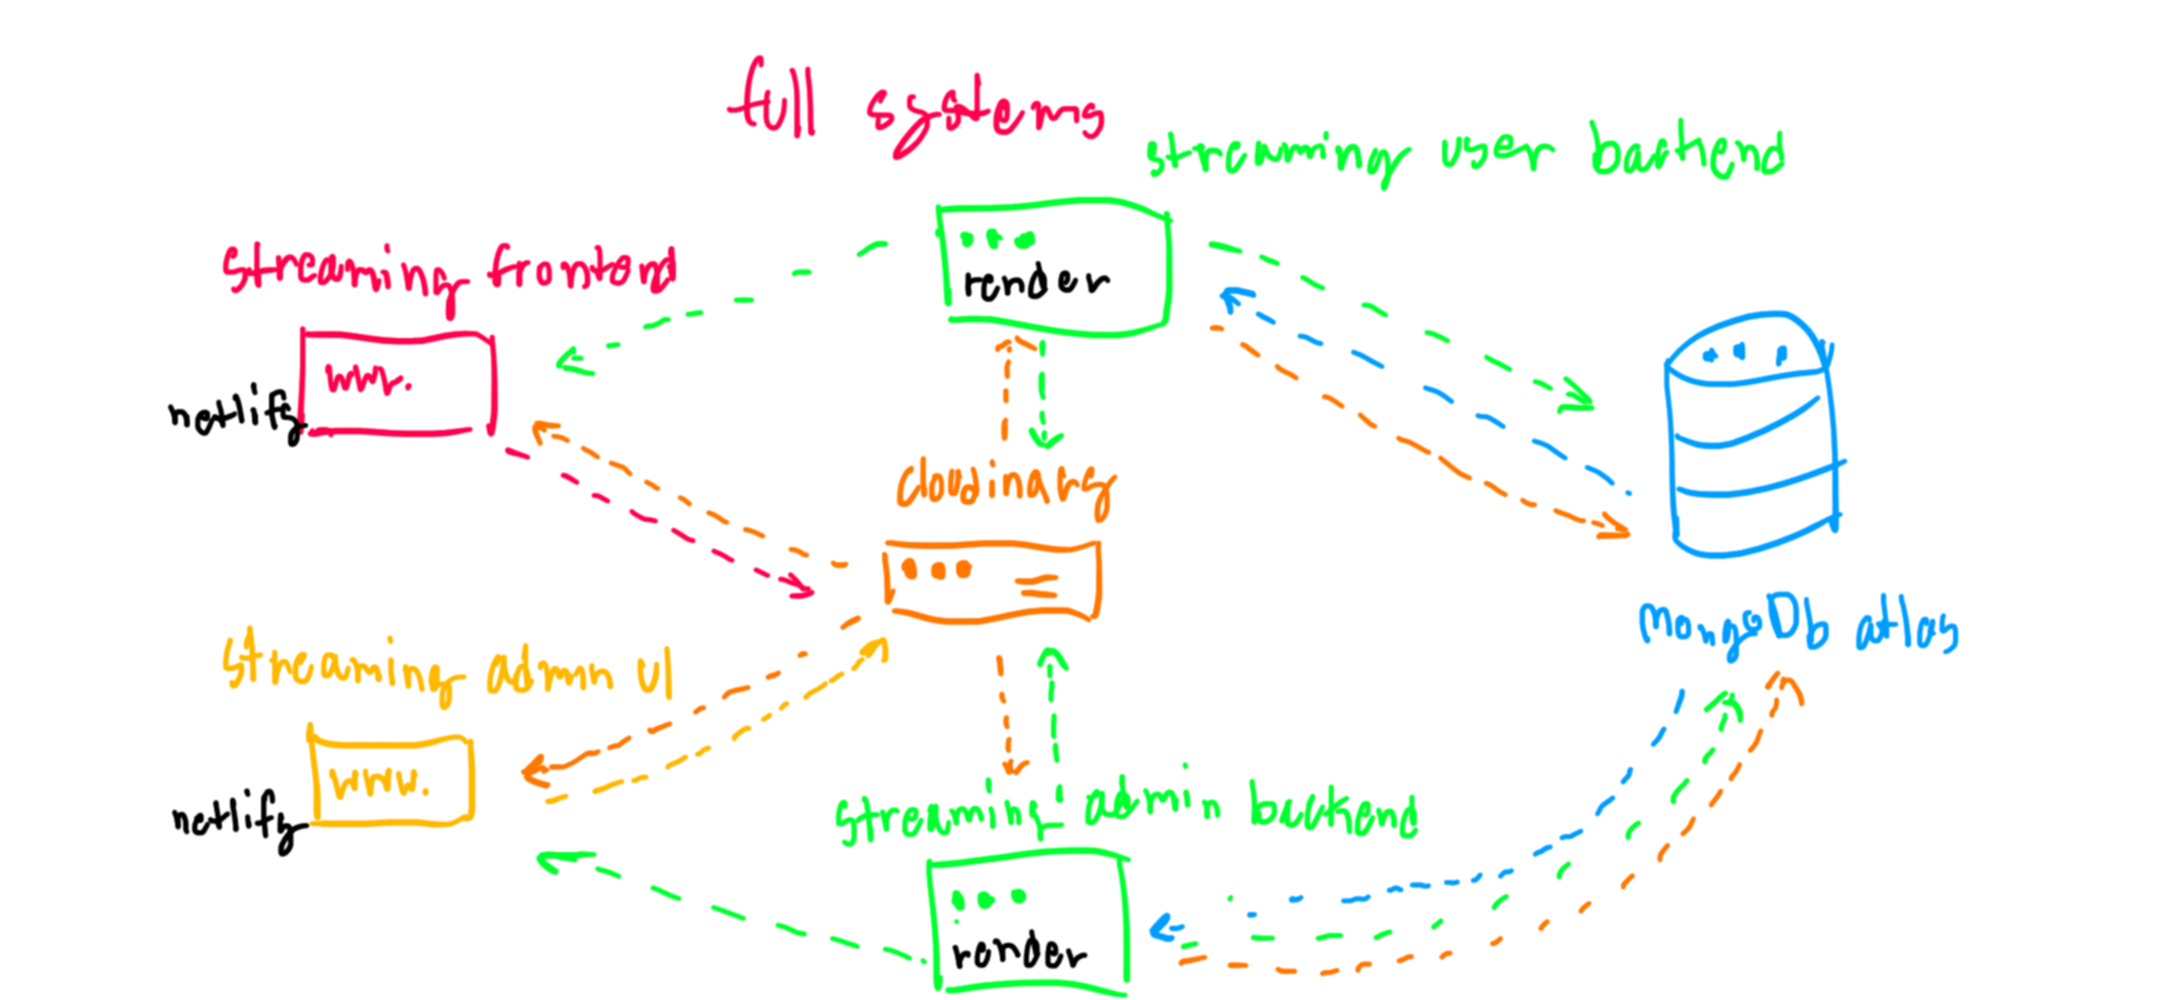 full systems
streaming user backend
render
streaming frontend
www.
netlify
cloudinary
mongoDb atlas
streaming admn uI
www.
netlify
streaming admin backend
render